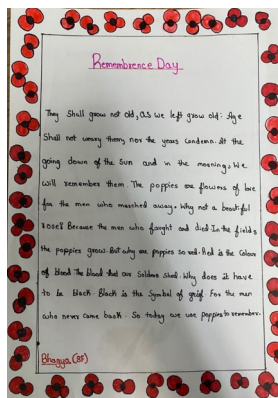 Remembrence Day
They Shall grow not old, as we left grow old: Age
Shall not weary them, nor the years Condemn. At the
going down of the Sun and in the morning, We
will remember them. The poppies are flowers of love
for the men who marched away. Why not a beautiful
rose? Because the men who fought and died In the fields
the poppies grow. But why are poppies so red. Red is the Colour
of blood The blood that our Soldiers Shed. Why does it have
to be black. Black is the Symbol of grief. For the men
who never came back. So today we use poppies to remember.
Bhagya (8F)